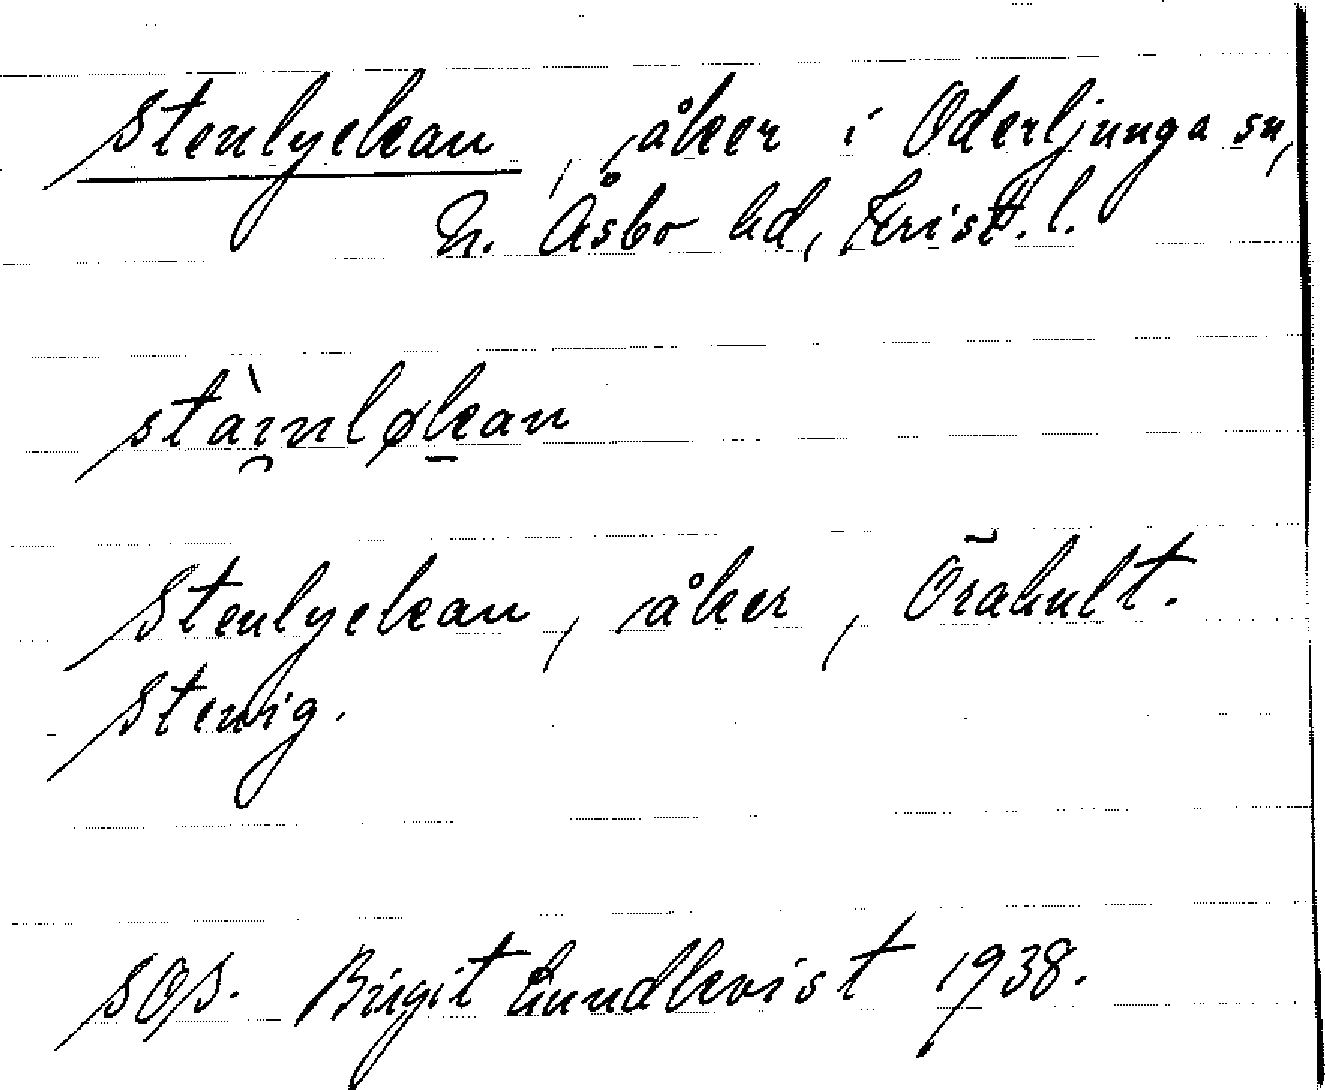 Stenlyckan, åker i Oderljunga sn,
N. Åsbo hd, Krist. l.
stài̯nløk̲an
Stenlyckan, åker, Örahult.
Stenig.
SOS. Birgit Lundkvist 1938.